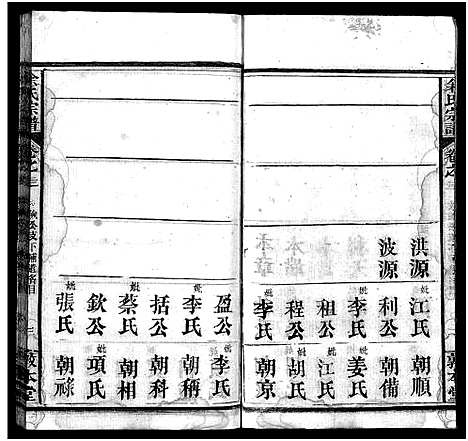 余氏宗譜
卷之三
洪源 妣江氏 朝順
波源 利公 朝備
妣李氏 妣姜氏
祖公 妣江氏
程公 妣胡氏
妣李氏 朝京
敦本堂
盈公 妣李氏
妣李氏 朝稱
括公 朝科
妣蔡氏 朝相
欽公 妣項氏
妣張氏 朝祿
余氏宗譜
卷之三
敦本堂